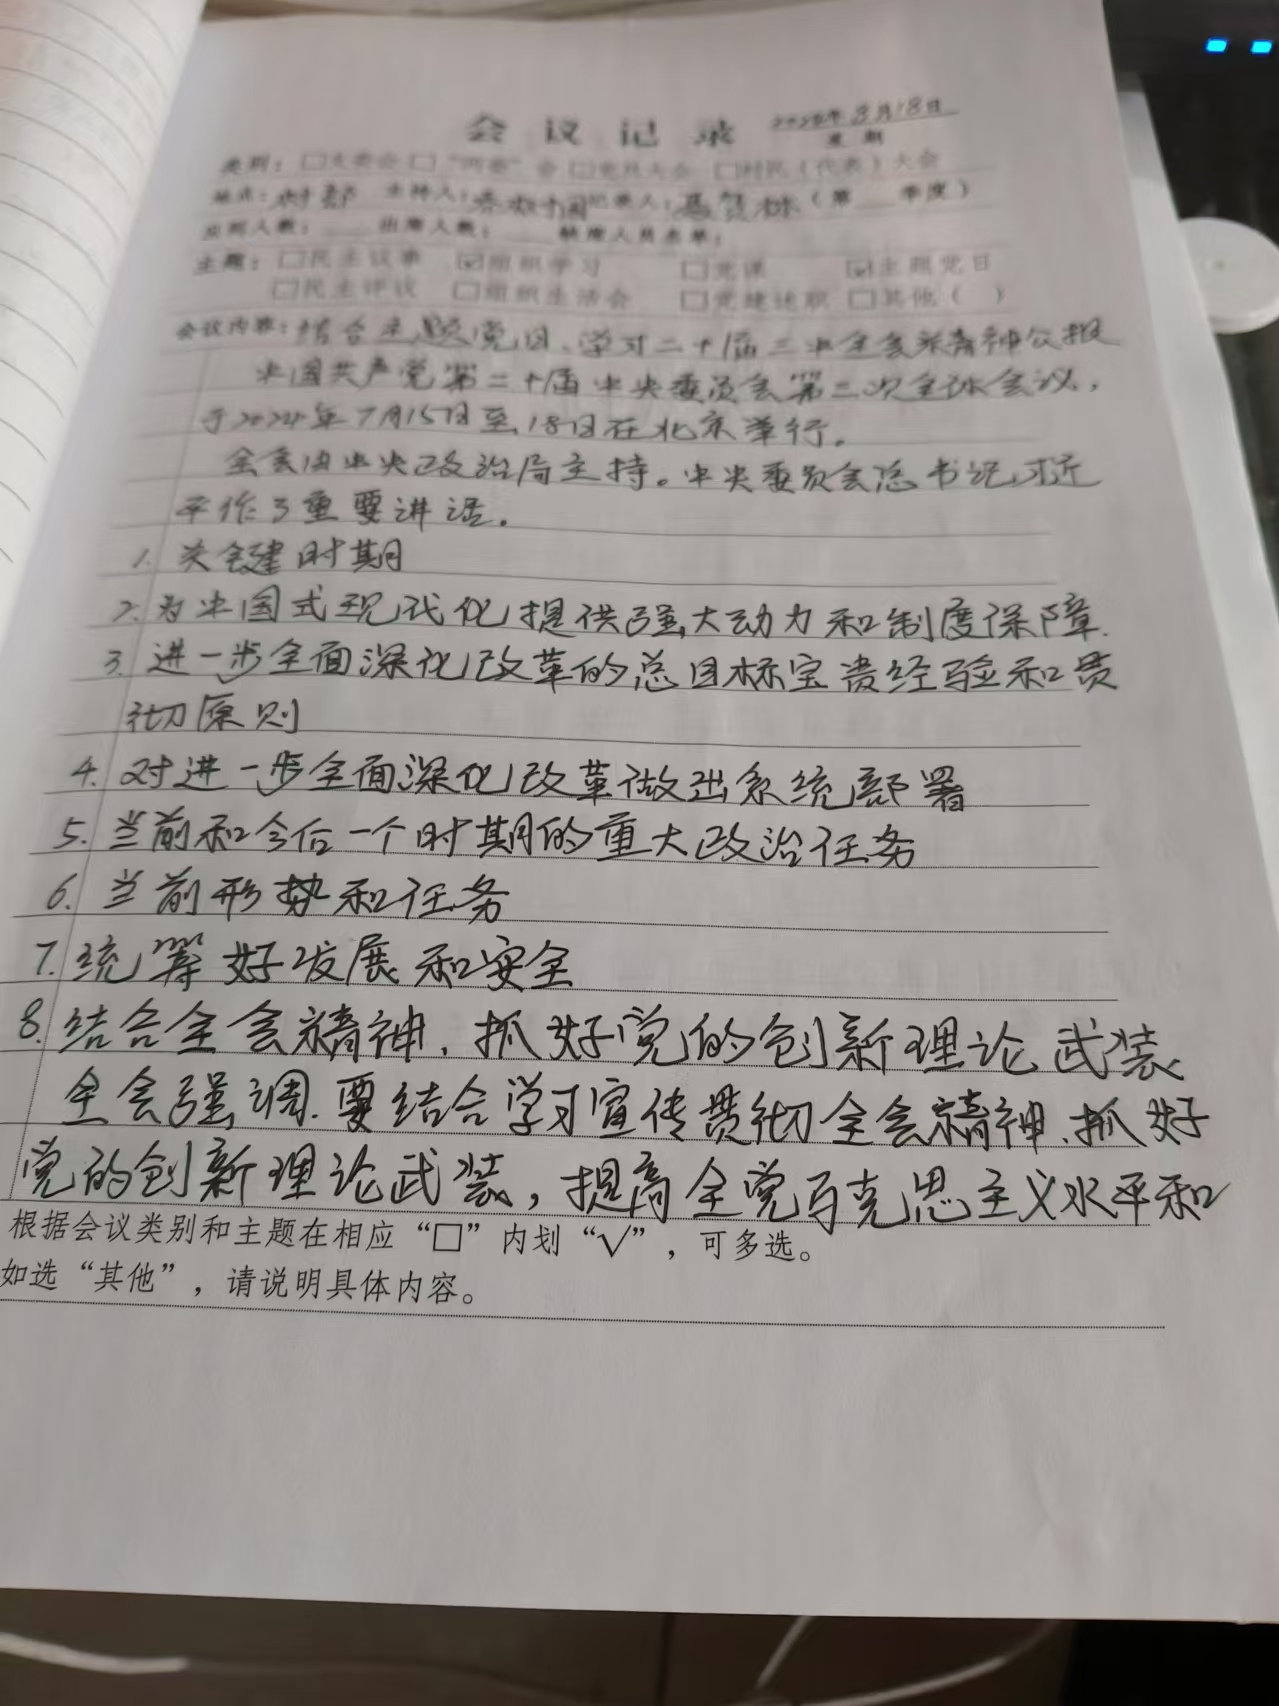 会议记录 2024年8月18日
星期
类别：□支委会 □“两委”会 □党员大会 □村民（代表）大会
地点：村部 主持人： 记录人：（第 季度）
应到人数： 出席人数： 缺席人员名单：
主题：□民主议事 ☑组织学习 □党课 ☑主题党日
□民主评议 □组织生活会 □党建述职 □其他（ ）
会议内容：结合主题党日、学习二十届三中全会精神公报
中国共产党第二十届中央委员会第三次全体会议，
于2024年7月15日至18日在北京举行。
全会由中央政治局主持。中央委员会总书记习近
平作了重要讲话。
1. 关键时期
2. 为中国式现代化提供强大动力和制度保障.
3. 进一步全面深化改革的总目标宝贵经验和贯
彻原则
4. 对进一步全面深化改革做出系统部署
5. 当前和今后一个时期的重大政治任务
6. 当前形势和任务
7. 统筹好发展和安全
8. 结合全会精神，抓好党的创新理论武装
全会强调.要结合学习宣传贯彻全会精神、抓好
党的创新理论武装，提高全党马克思主义水平和
根据会议类别和主题在相应“□”内划“√”，可多选。
如选“其他”，请说明具体内容。